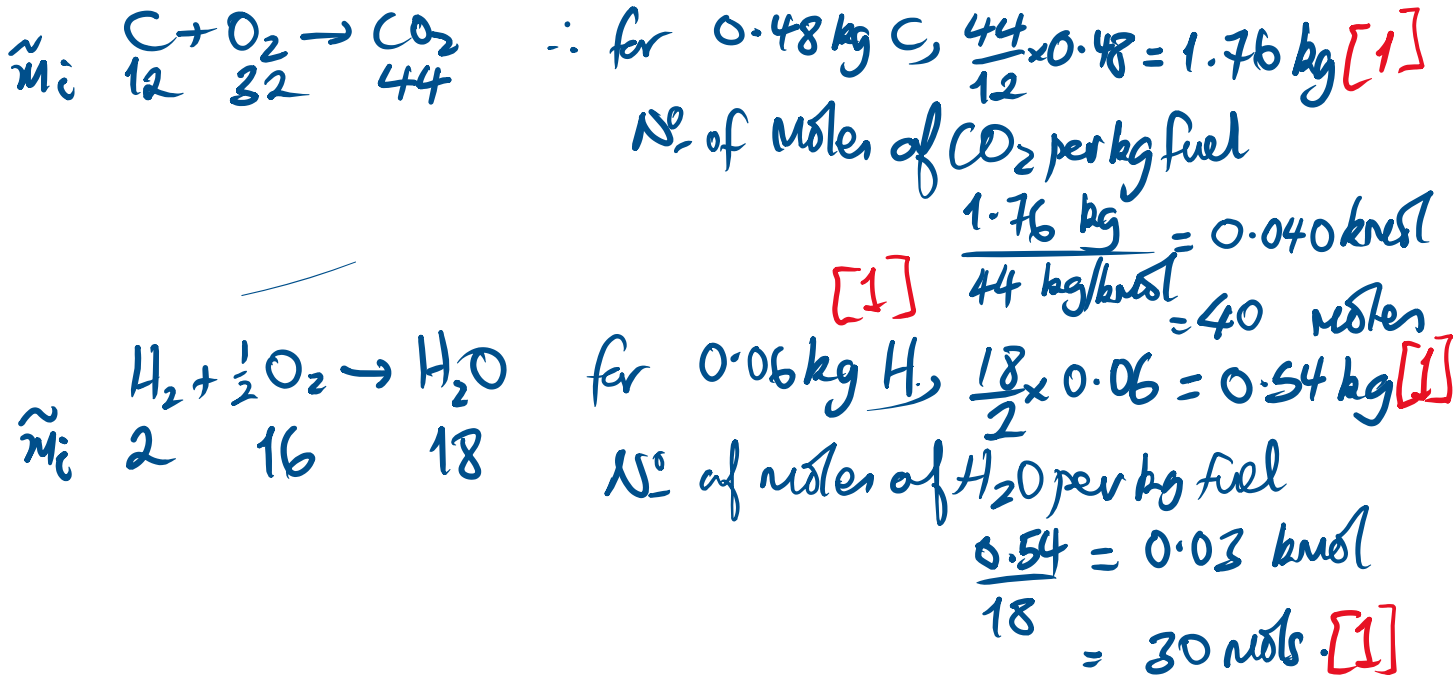 C + O₂ → CO₂ ∴ for 0.48 kg C, 44/12 × 0.48 = 1.76 kg [1]
m̃ᵢ 12 32 44
Nº of moles of CO₂ per kg fuel
1.76 kg / 44 kg/kmol = 0.040 kmol
[1]
= 40 moles
H₂ + ½ O₂ → H₂O for 0.06 kg H, 18/2 × 0.06 = 0.54 kg [1]
m̃ᵢ 2 16 18
Nº of moles of H₂O per kg fuel
0.54 / 18 = 0.03 kmol
= 30 mols. [1]